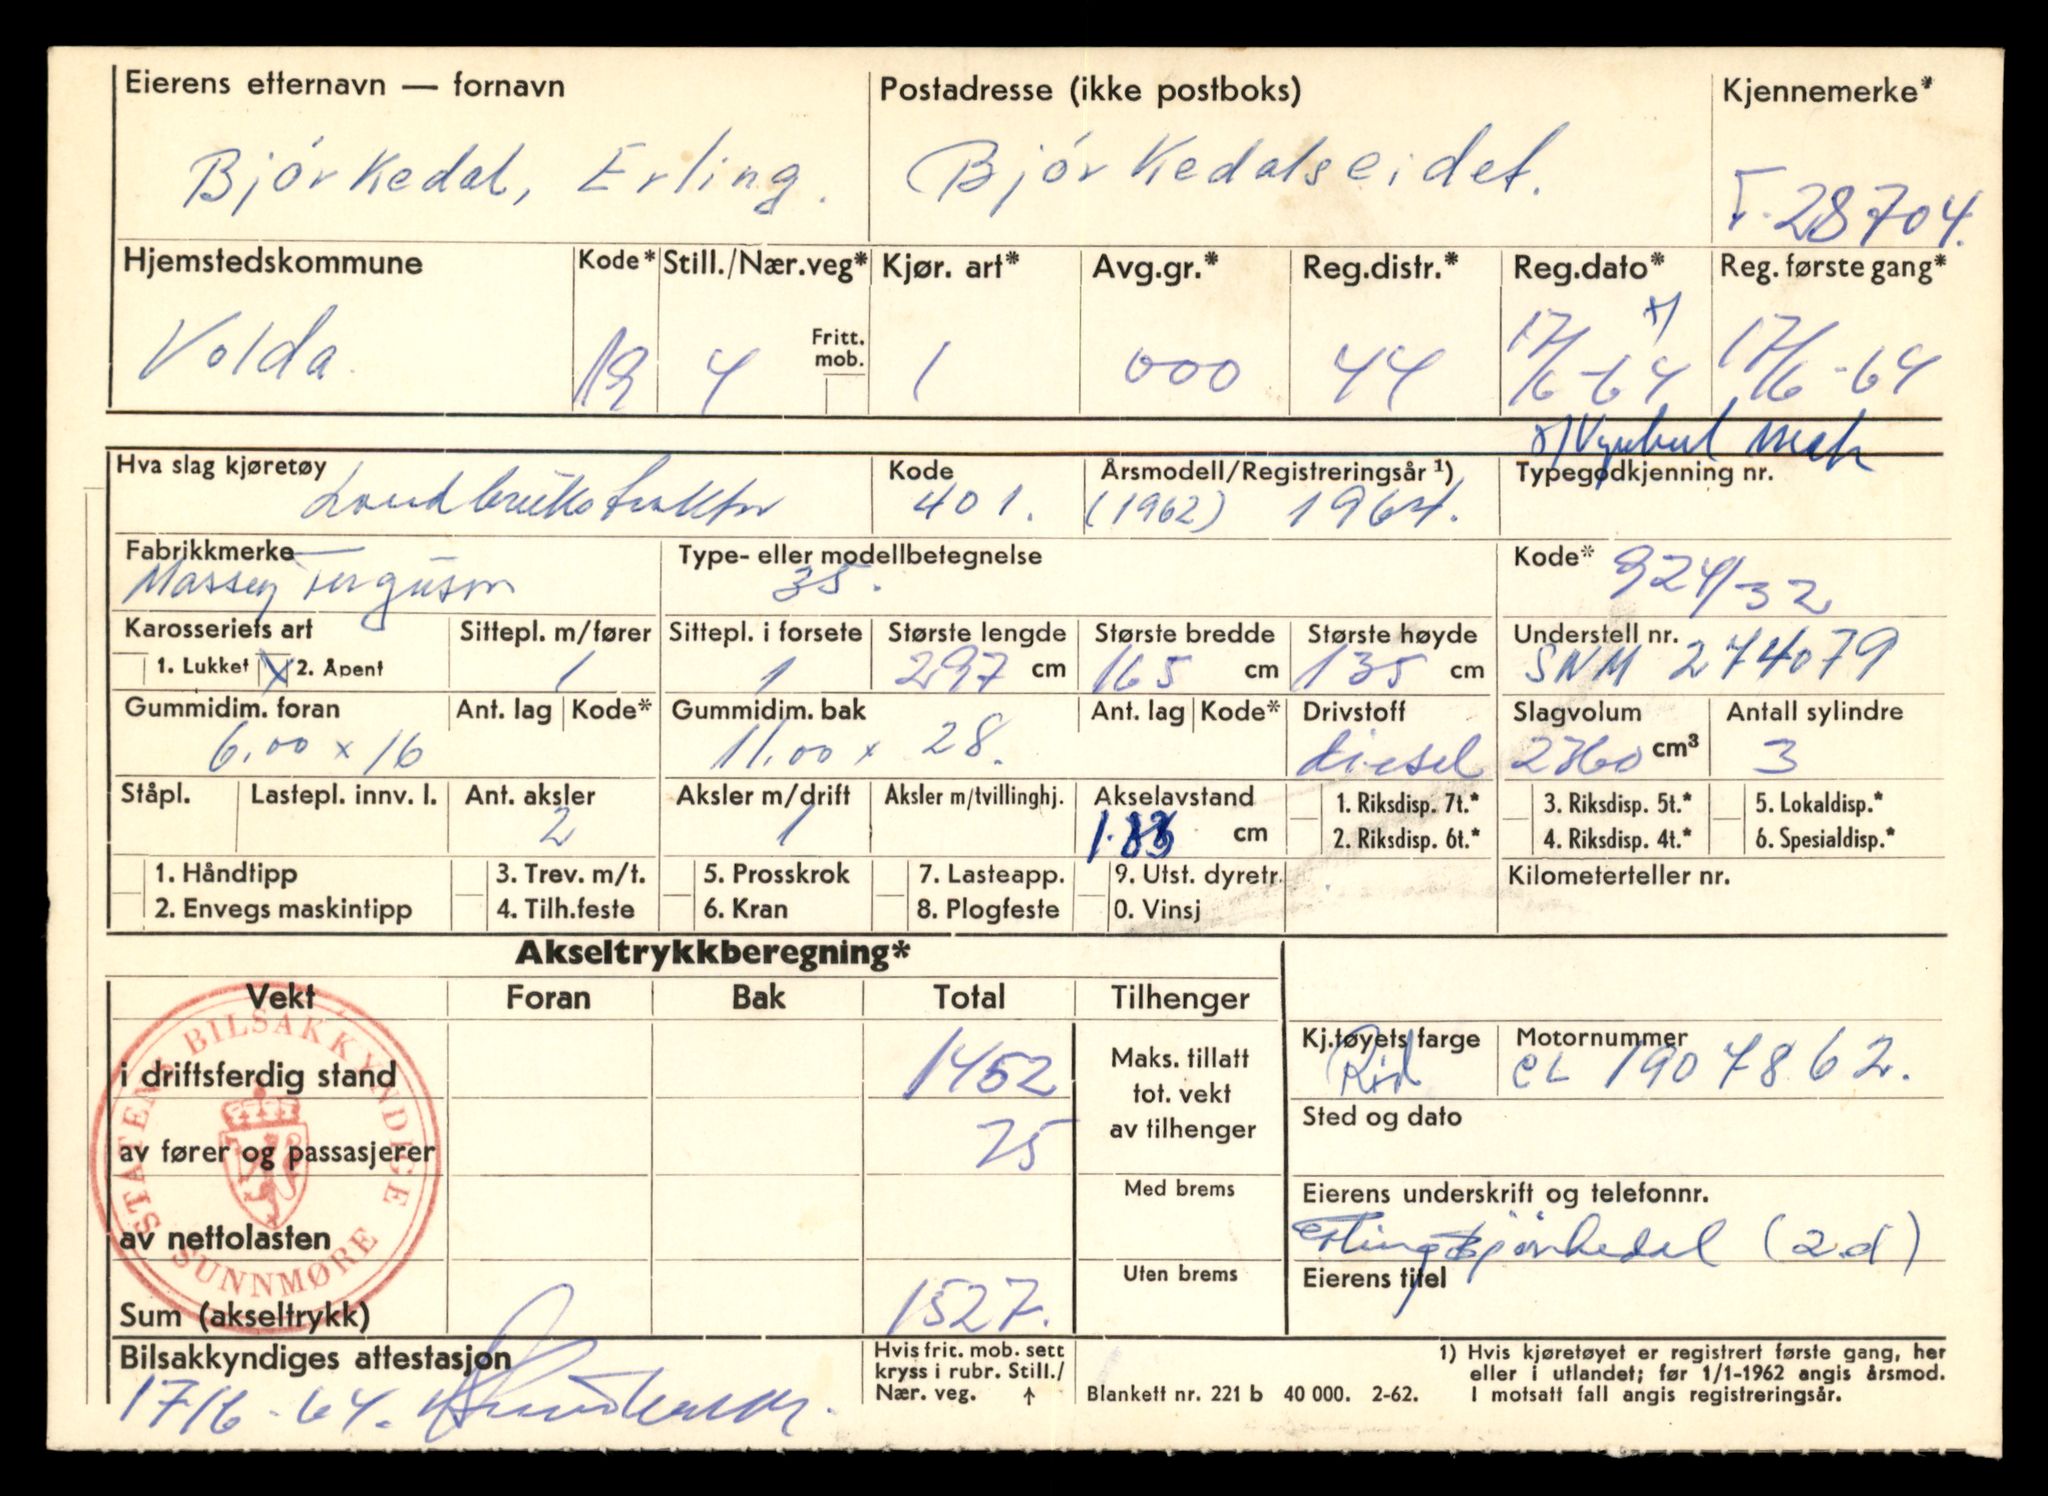 Eierens etternavn — fornavn Postadresse (ikke postboks) Kjennemerke*
Bjórkedal, Erling. Bjórkedalseidet. T-28704.
Hjemstedskommune Kode* Still./Nær.veg* Kjør. art* Avg.gr.* Reg.distr.* Reg.dato* Reg. første gang*
Volda. 19 4 Fritt. mob. 1 000 44 17/6-64 x) 17/6-64
x)
Hva slag kjøretøy Kode Årsmodell/Registreringsår ¹) Typegodkjenning nr.
Landbrukstraktor 401. (1962) 1964.
Fabrikkmerke Type- eller modellbetegnelse Kode*
Massey Ferguson 35. 924/32
Karosseriets art Sittepl. m/fører Sittepl. i forsete Største lengde Største bredde Største høyde Understell nr.
1. Lukket X 2. Åpent 1 1 297 cm 165 cm 135 cm SNM 274079
Gummidim. foran Ant. lag Kode* Gummidim. bak Ant. lag Kode* Drivstoff Slagvolum Antall sylindre
6.00 x 16 11.00 x 28. diesel 2360 cm³ 3
Ståpl. Lastepl. innv. l. Ant. aksler Aksler m/drift Aksler m/tvillinghj. Akselavstand 1. Riksdisp. 7t.* 3. Riksdisp. 5t.* 5. Lokaldisp.*
2 1 1.83 cm 2. Riksdisp. 6t.* 4. Riksdisp. 4t.* 6. Spesialdisp.*
1. Håndtipp 3. Trev. m/t. 5. Prosskrok 7. Lasteapp. 9. Utst. dyretr. Kilometerteller nr.
2. Envegs maskintipp 4. Tilh.feste 6. Kran 8. Plogfeste 0. Vinsj
Akseltrykkberegning*
Vekt Foran Bak Total Tilhenger
Kj.tøyets farge Motornummer
i driftsferdig stand 1452 Maks. tillatt tot. vekt av tilhenger Rød CL 1907862.
Sted og dato
av fører og passasjerer 75
Med brems Eierens underskrift og telefonnr.
av nettolasten Erling Bjørkedal (2.d)
Uten brems Eierens titel
Sum (akseltrykk) 1527.
STATENS BILSAKKYNDIGE SUNNMØRE
Bilsakkyndiges attestasjon
17/6-64.
Hvis frit. mob. sett
kryss i rubr. Still./
Nær. veg. ↑
Blankett nr. 221 b 40 000. 2-62.
1) Hvis kjøretøyet er registrert første gang, her
eller i utlandet; før 1/1-1962 angis årsmod.
I motsatt fall angis registreringsår.